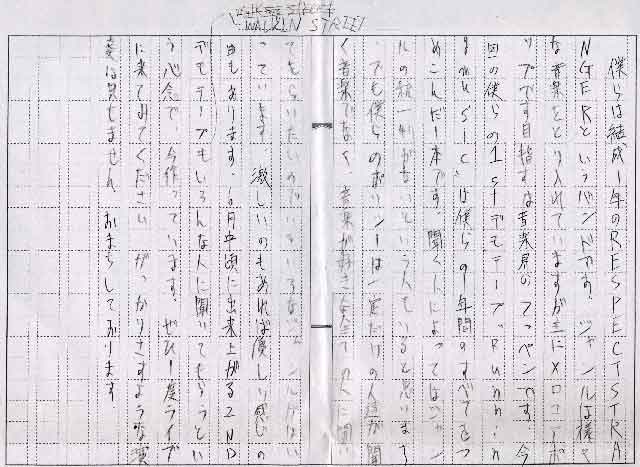 WALKIN STREET
僕らは結成1年のRESPECTSTRA
NGERというバンドです。ジャンルは様々
な音楽をとり入れていますが主にメロコーポ
ップです目指すは音楽界のてっぺんです。今
回の僕らの1stデモテープ"Runnin
Music"は僕らの1年間のすべてをつ
めこんだ1本です。聞く人によってはジャン
ルの統一性がないという人もいると思います
。でも僕らのポリシーは一定だけの人達が聞
く音楽でなく、音楽が好きな全ての人に聞い
てもらいたいのでいろいろなジャンルがはい
っています。激しいのもあれば優しい感じの
曲もあります。10月中頃に出来上がる2ND
デモテープもいろんな人に聞いてもらうとい
う心念で今作っています。ぜひ一度ライブ
に来てみてください がっかりさすような演
奏は見せません。おまちしております。